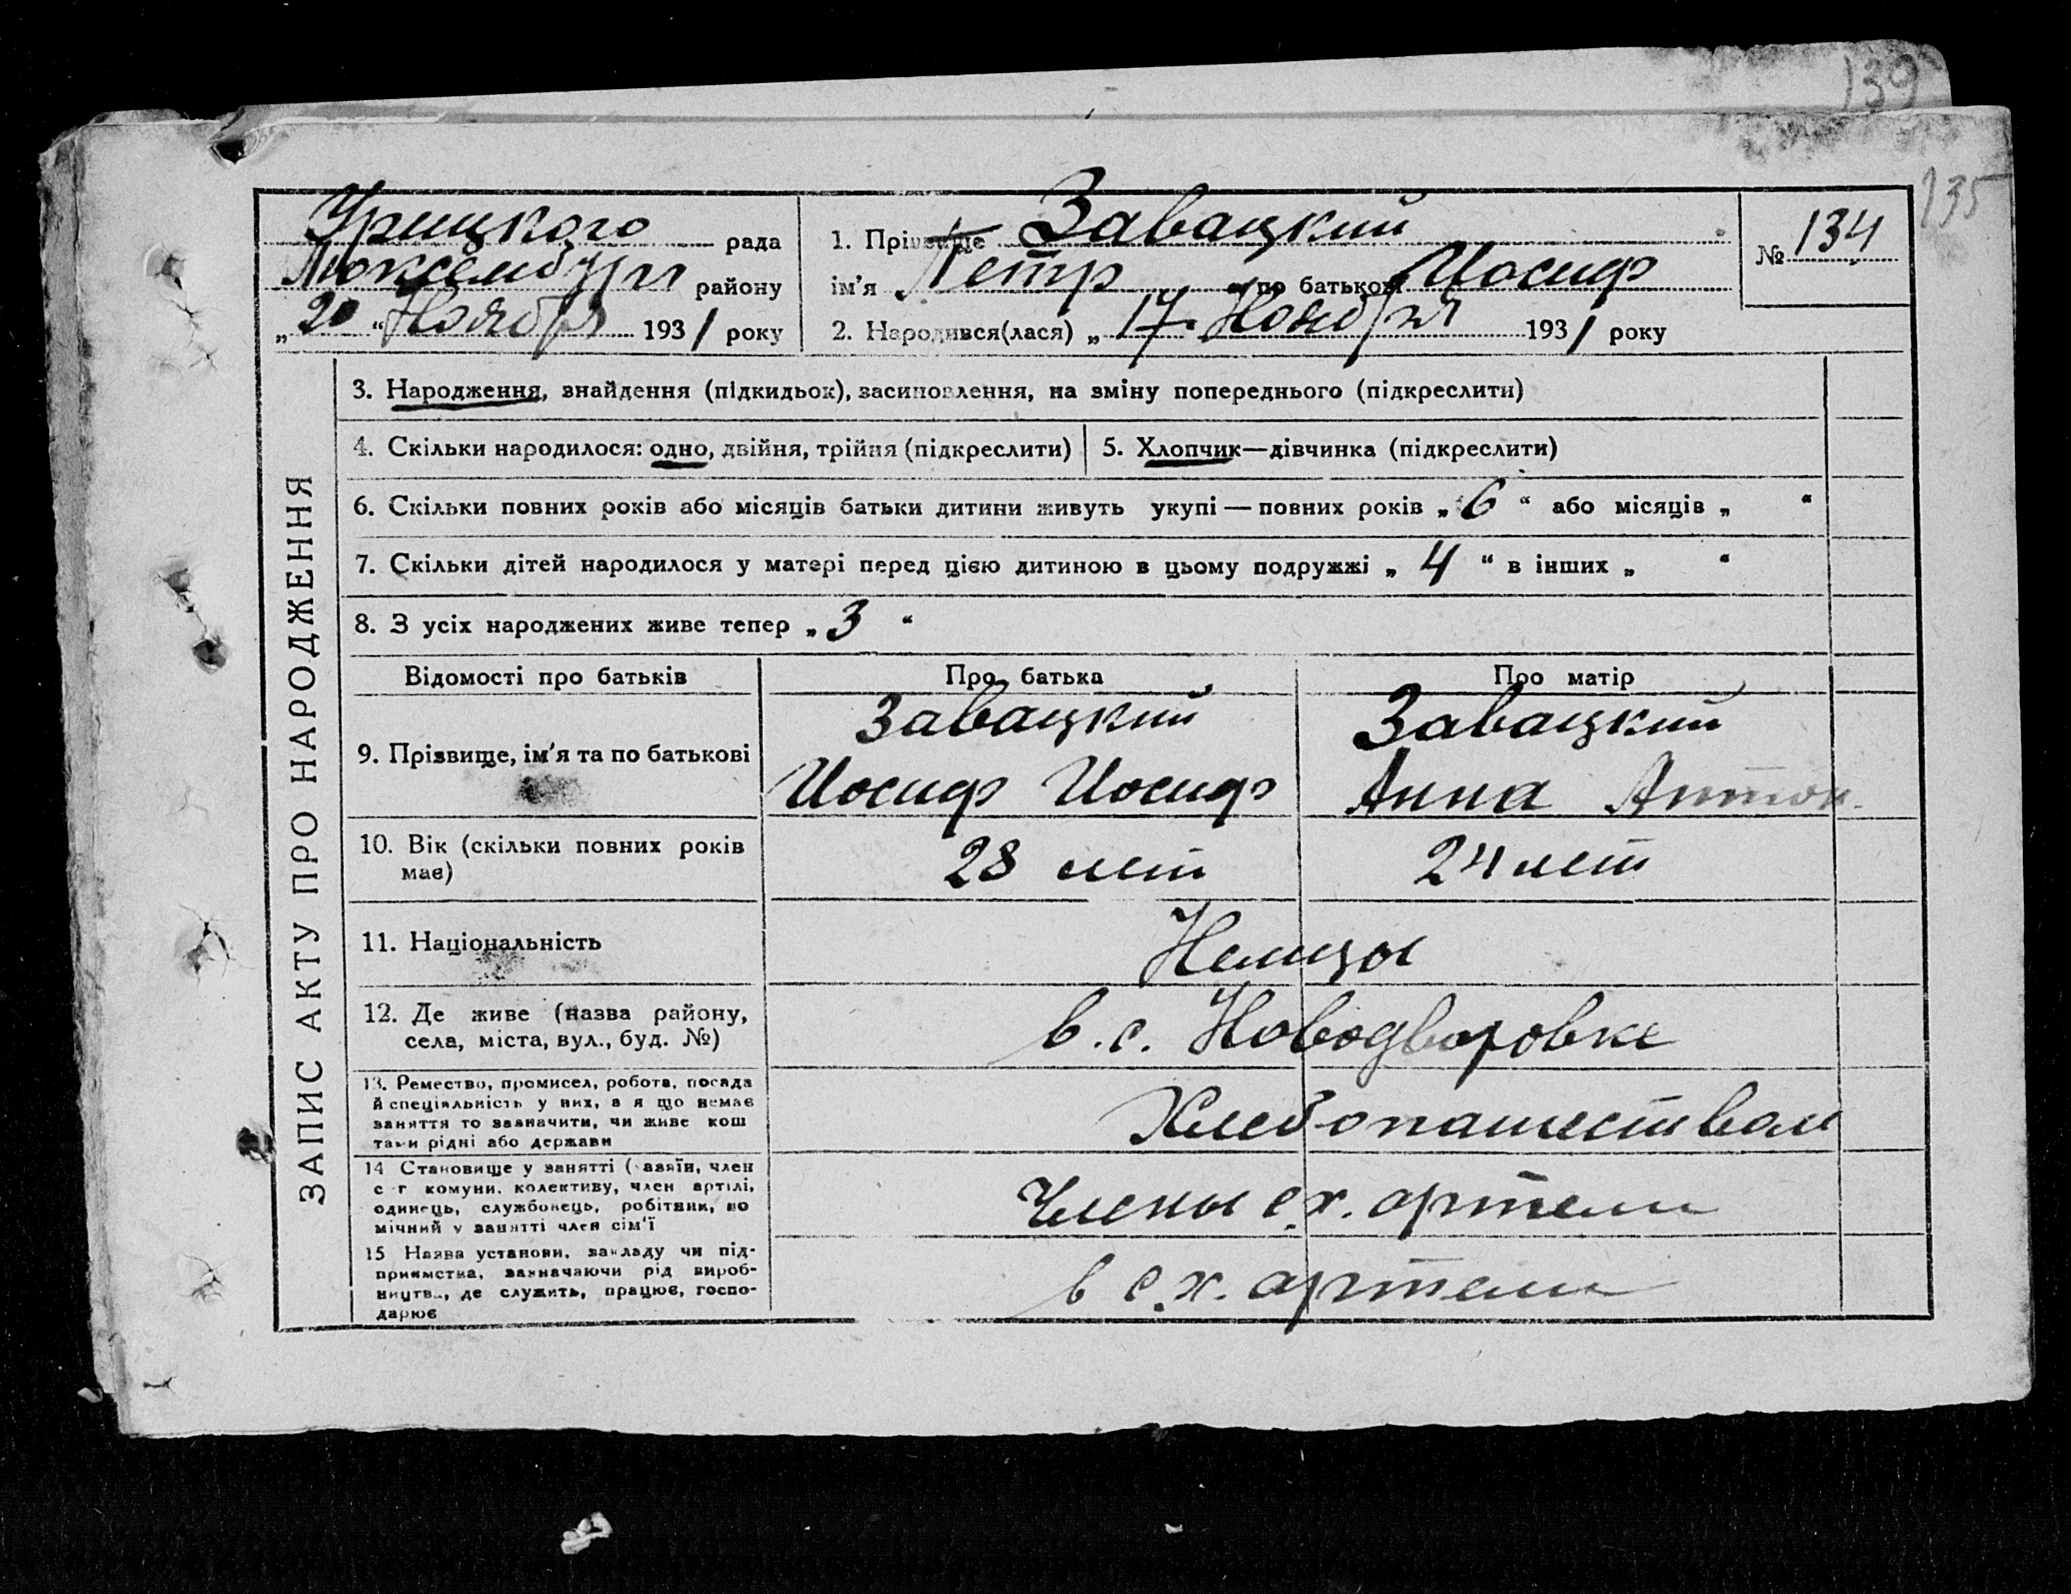 139
135
Урицкого рада
Люксембург району
„ 20 “ Ноября 1931 року
1. Прізвище Завацкий
ім’я Петр по батькові Иосиф
2. Народився(лася) „ 17 Ноября 1931 року
№ 134
ЗАПИС АКТУ ПРО НАРОДЖЕННЯ
3. Народження, знайдення (підкидьок), засиновлення, на зміну попереднього (підкреслити)
4. Скільки народилося: одно, двійня, трійня (підкреслити)
5. Хлопчик—дівчинка (підкреслити)
6. Скільки повних років або місяців батьки дитини живуть укупі — повних років „ 6 “ або місяців „ “
7. Скільки дітей народилося у матері перед цією дитиною в цьому подружжі „ 4 “ в інших „ “
8. З усіх народжених живе тепер „ 3 “
Відомості про батьків
Про батька
Про матір
9. Прізвище, ім’я та по батькові
Завацкий
Иосиф Иосиф
Завацкий
Анна Антон.
10. Вік (скільки повних років
має)
28 лет
24 лет
11. Національність
Немцы
12. Де живе (назва району,
села, міста, вул., буд. №)
в. с. Новодворовке
13. Ремество, промисел, робота, посада
й спеціяльність у них, а я що немає
заняття то зазначити, чи живе кош
тами рідні або держави
Хлебопашеством
14 Становище у занятті (хазяїн, член
с г комуни, колективу, член артілі,
одинець, службовець, робітник, по
мічний у занятті член сім’ї
Члены с.х. артели
15 Назва установи, закладу чи під-
приємства, зазначаючи рід вироб-
ництва, де служить, працює, госпо-
дарює
в с.х. артели